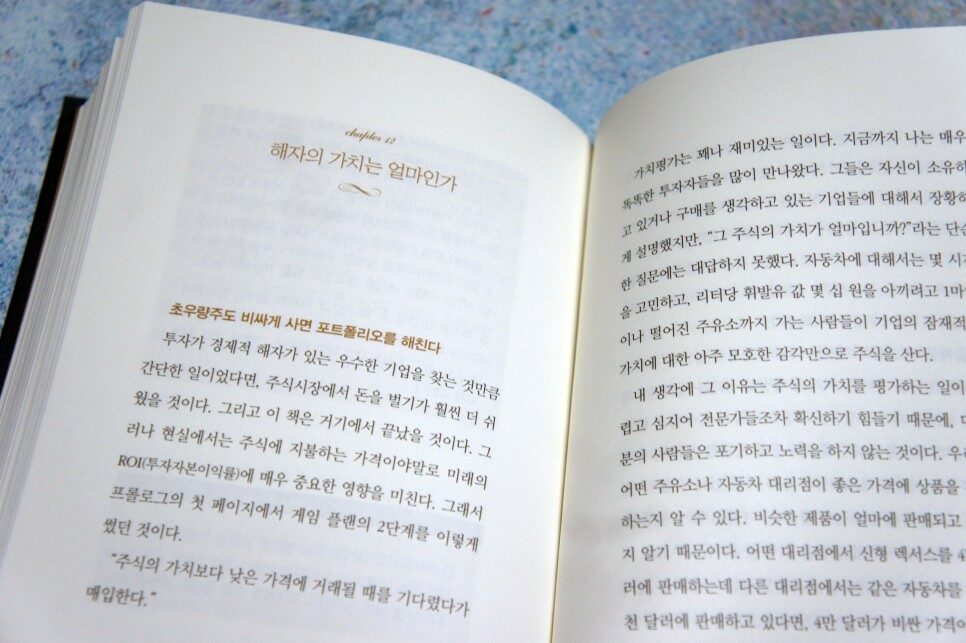 chapter 12
해자의 가치는 얼마인가
초우량주도 비싸게 사면 포트폴리오를 해친다
투자가 경제적 해자가 있는 우수한 기업을 찾는 것만큼
간단한 일이었다면, 주식시장에서 돈을 벌기가 훨씬 더 쉬
웠을 것이다. 그리고 이 책은 거기에서 끝났을 것이다. 그
러나 현실에서는 주식에 지불하는 가격이야말로 미래의
ROI(투자자본이익률)에 매우 중요한 영향을 미친다. 그래서
프롤로그의 첫 페이지에서 게임 플랜의 2단계를 이렇게
썼던 것이다.
“주식의 가치보다 낮은 가격에 거래될 때를 기다렸다가
매입한다.”
가치평가는 꽤나 재미있는 일이다. 지금까지 나는 매우
똑똑한 투자자들을 많이 만나왔다. 그들은 자신이 소유하
고 있거나 구매를 생각하고 있는 기업들에 대해서 장황하
게 설명했지만, “그 주식의 가치가 얼마입니까?”라는 단순
한 질문에는 대답하지 못했다. 자동차에 대해서는 몇 시
을 고민하고, 리터당 휘발유 값 몇 십 원을 아끼려고 1마
이나 떨어진 주유소까지 가는 사람들이 기업의 잠재적
가치에 대한 아주 모호한 감각만으로 주식을 산다.
내 생각에 그 이유는 주식의 가치를 평가하는 일이
렵고 심지어 전문가들조차 확신하기 힘들기 때문에,
분의 사람들은 포기하고 노력을 하지 않는 것이다. 우리
어떤 주유소나 자동차 대리점이 좋은 가격에 상품을
하는지 알 수 있다. 비슷한 제품이 얼마에 판매되고
지 알기 때문이다. 어떤 대리점에서 신형 렉서스를 4
러에 판매하는데 다른 대리점에서는 같은 자동차를
천 달러에 판매하고 있다면, 4만 달러가 비싼 가격이